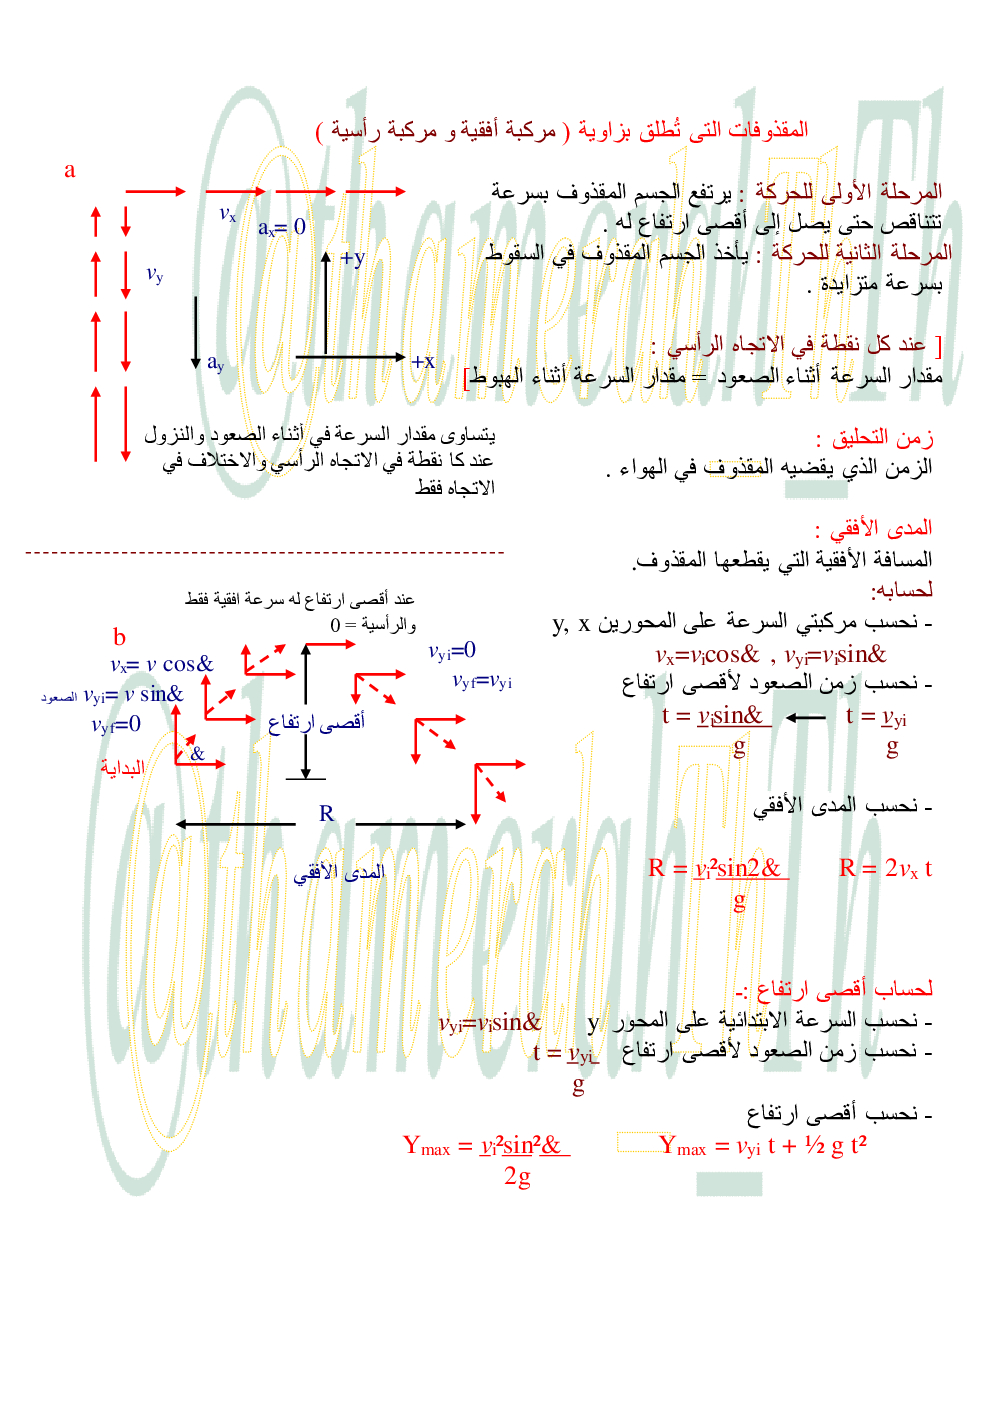 المقذوفات التى تُطلق بزاوية ( مركبة أفقية و مركبة رأسية )
a
المرحلة الأولى للحركة : يرتفع الجسم المقذوف بسرعة
تتناقص حتى يصل إلى أقصى ارتفاع له .
المرحلة الثانية للحركة : يأخذ الجسم المقذوف في السقوط
بسرعة متزايدة .
vₓ
aₓ= 0
+y
v_y
a_y
+x
[ عند كل نقطة في الاتجاه الرأسي :
مقدار السرعة أثناء الصعود = مقدار السرعة أثناء الهبوط]
يتساوى مقدار السرعة في أثناء الصعود والنزول
عند كا نقطة في الاتجاه الرأسي والاختلاف في
الاتجاه فقط
زمن التحليق :
الزمن الذي يقضيه المقذوف في الهواء .
المدى الأفقي :
المسافة الأفقية التي يقطعها المقذوف.
لحسابه:
- نحسب مركبتي السرعة على المحورين y, x
vₓ=vᵢcos& , v_yi=vᵢsin&
- نحسب زمن الصعود لأقصى ارتفاع
t = vᵢsin& t = v_yi
g g
- نحسب المدى الأفقي
R = vᵢ²sin2& R = 2vₓ t
g
عند أقصى ارتفاع له سرعة افقية فقط
والرأسية = 0
b
vₓ= v cos&
الصعود v_yi= v sin&
v_yf=0
v_yi=0
v_yf=v_yi
أقصى ارتفاع
&
البداية
R
المدى الأفقي
لحساب أقصى ارتفاع :-
- نحسب السرعة الابتدائية على المحور y v_yi=vᵢsin&
- نحسب زمن الصعود لأقصى ارتفاع t = v_yi
g
- نحسب أقصى ارتفاع
Y_max = vᵢ²sin²& Y_max = v_yi t + ½ g t²
2g
@thameerah_Th
@thameerah_Th